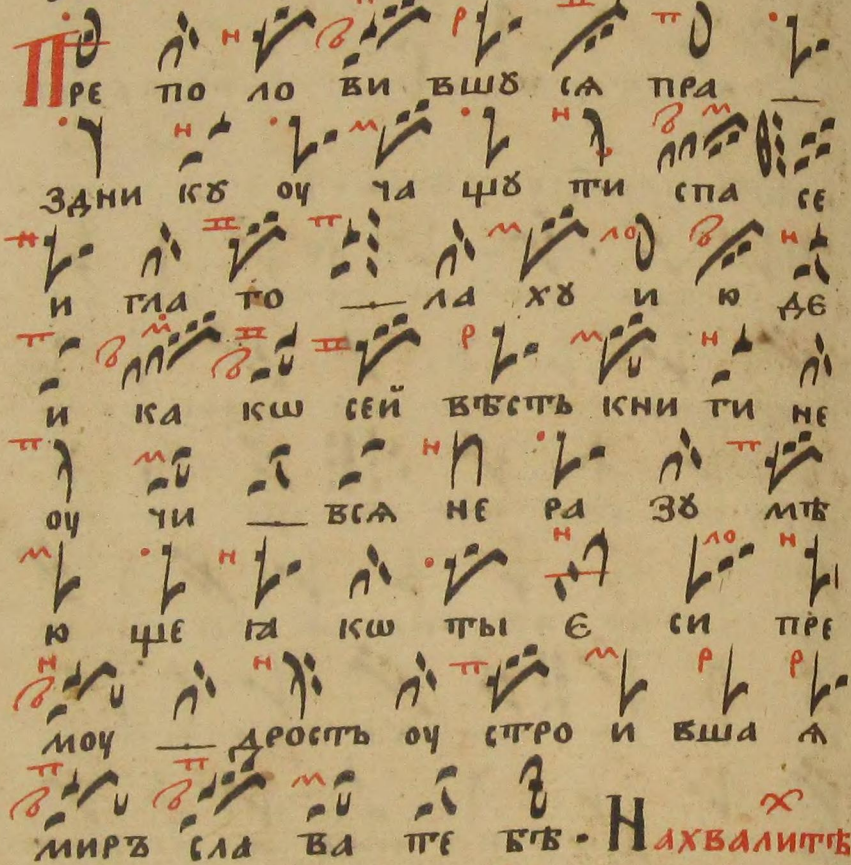 Пре по ло ви вшꙋ сѧ пра —
здни кꙋ оу ча щꙋ ти спа се
и гла го — ла хꙋ и ю де
и ка кѡ сей вѣсть кни ги не
оу чи — всѧ не ра зꙋ мѣ
ю ще ꙗ кѡ ты є си пре
моу — дрость оу стро и вша ѧ
миръ сла ва те бѣ · Нахвалитѣх